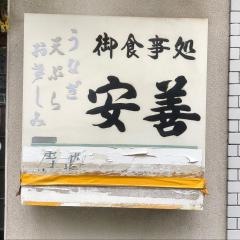 御食事処
安善
うなぎ
天ぷら
お楽しみ